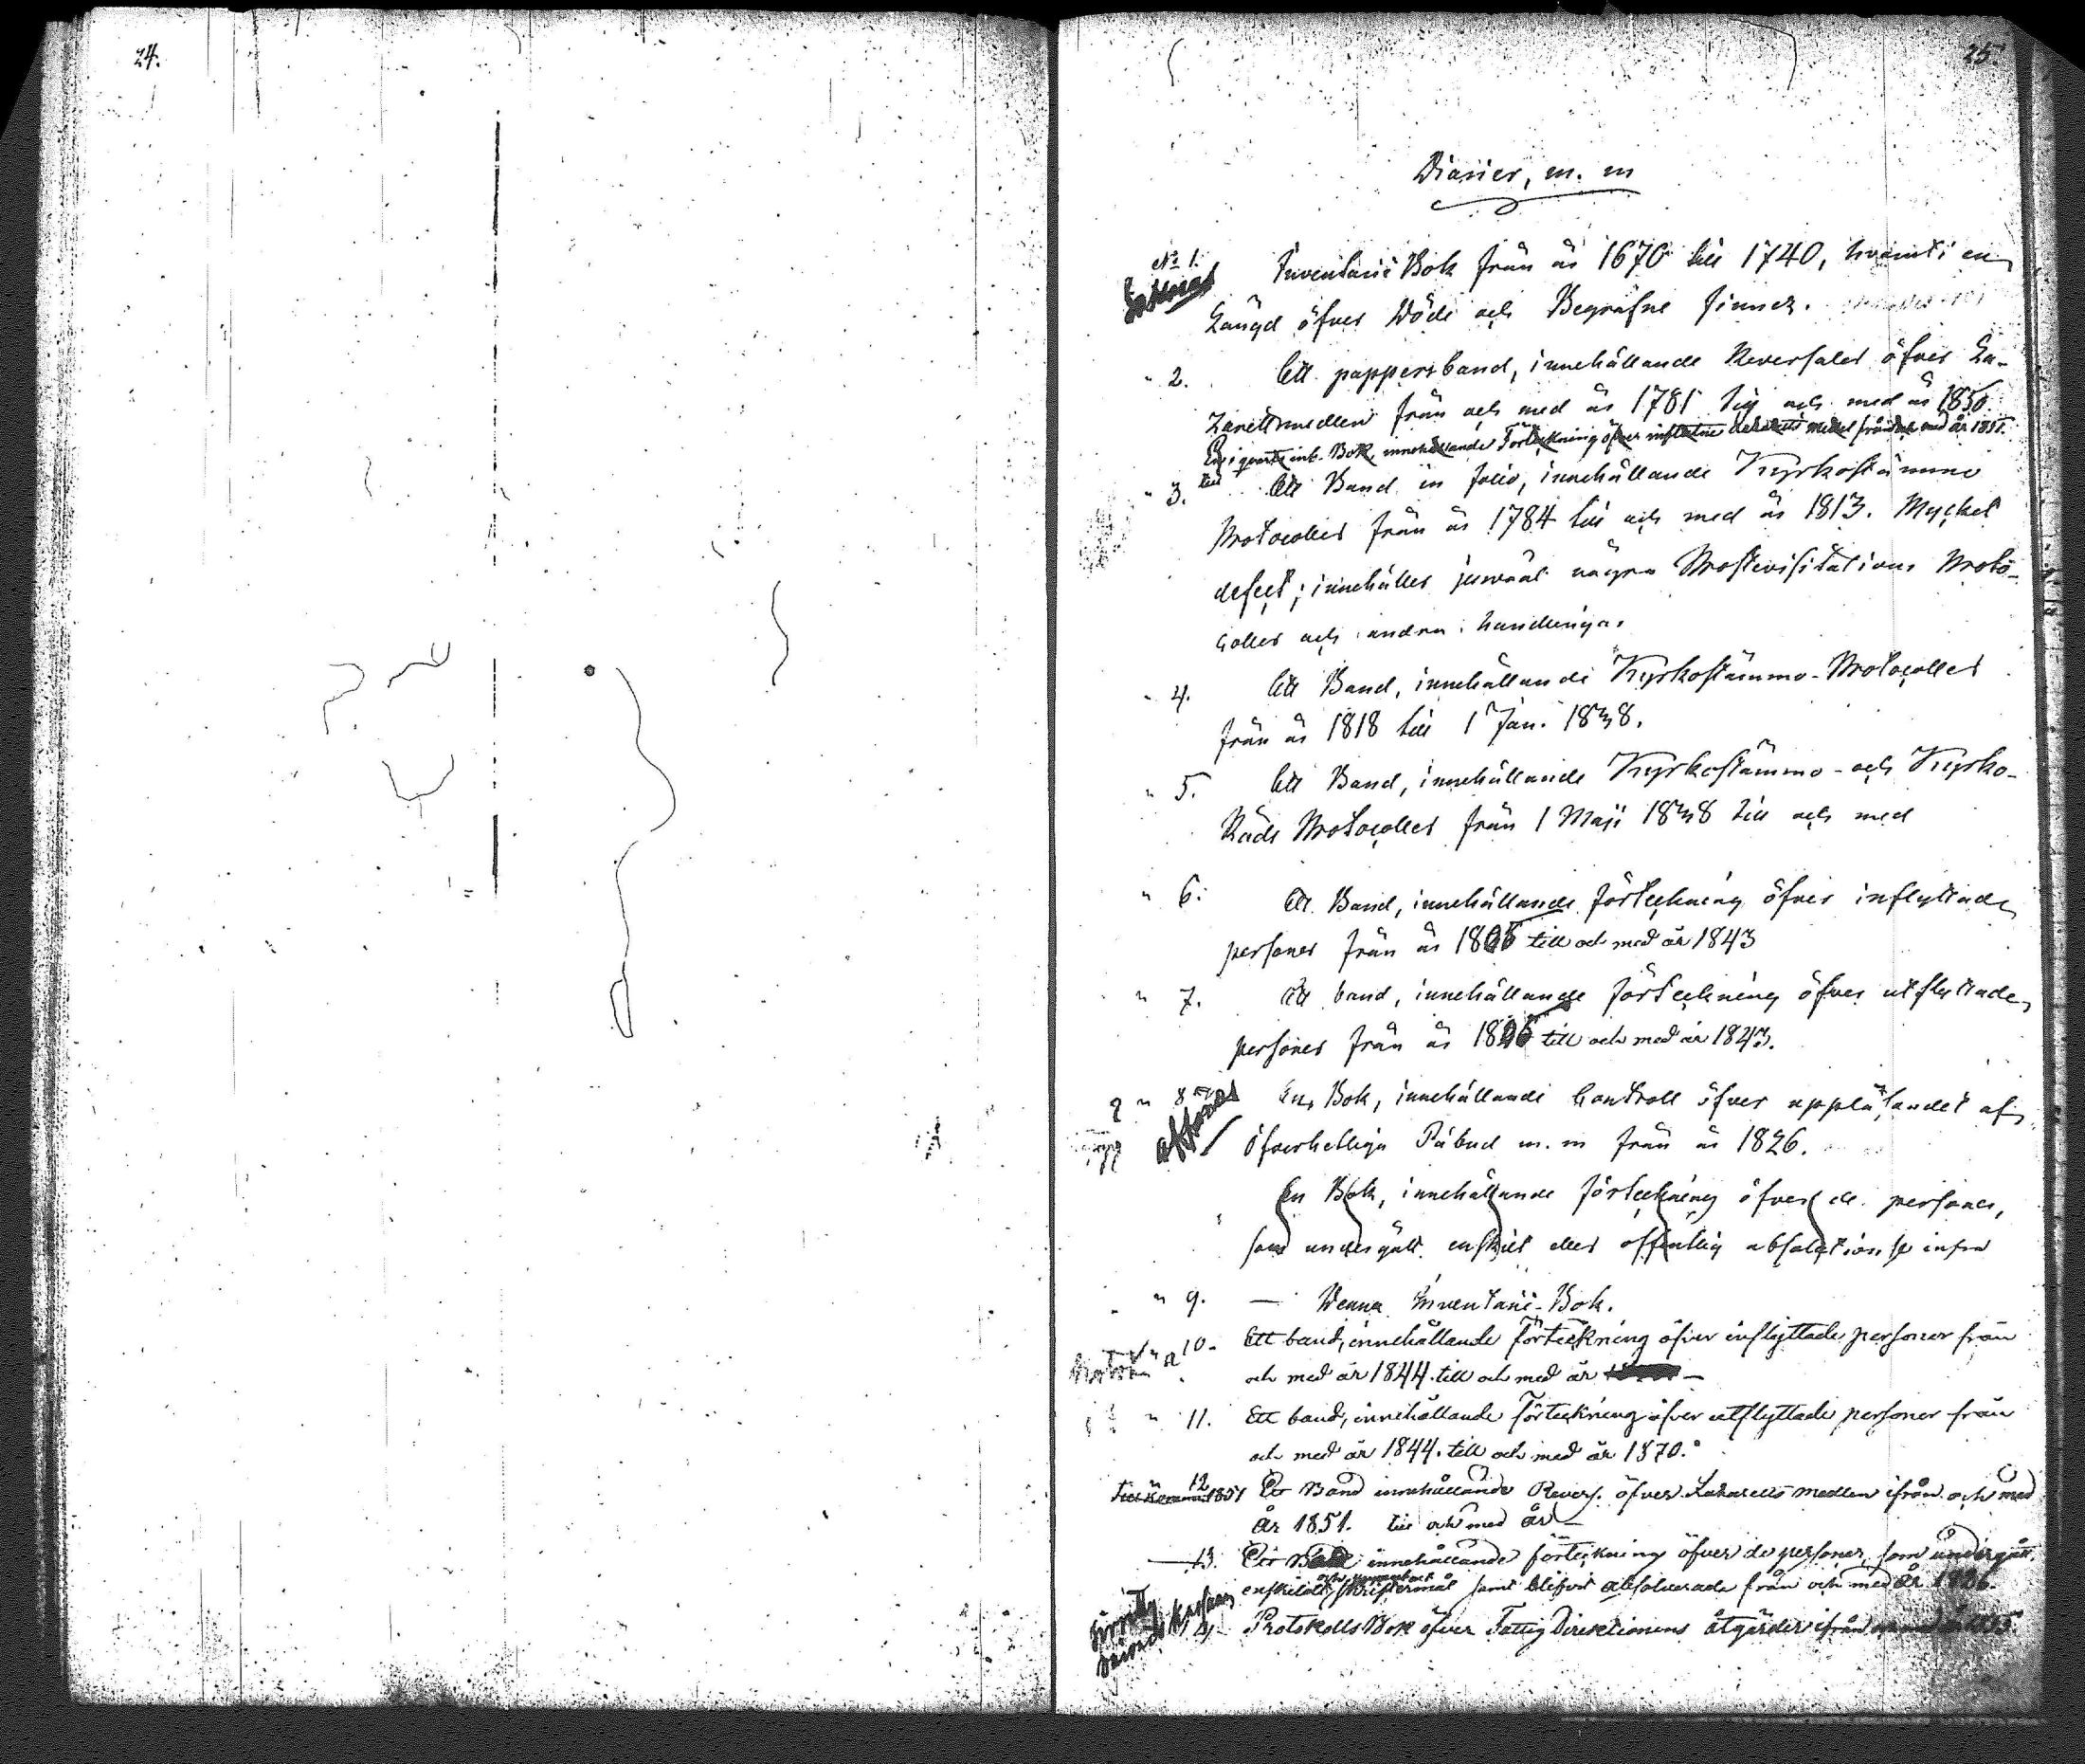 24.
25.
Diarier, m. m
No 1. Inventarii Bok från år 1670 till 1740, hvaruti en
Längd öfver Döde och Begrafne finnes.
" 2. Ett pappersband, innehållande Reversaler öfver La-
zarettsmedlen från och med år 1781 till och med år 1850
En i quarto inb. Bok, innehållande Förteckning öfver influtne Lazaretts medel från och med år 1851.
till
" 3. Ett Band in folio, innehållande Kyrkostämmo
Protocoller från år 1784 till och med år 1813. Mycket
defect; innehåller jemväl några Prostvisitations Proto-
coller och andra handlingar
" 4. Ett Band, innehållande Kyrkostämmo-Protocoller
från år 1818 till 1 Jan. 1838.
" 5. Ett Band, innehållande Kyrkostämmo- och Kyrko-
Råds Protocoller från 1 Maji 1838 till och med
" 6. Ett Band, innehållande förteckning öfver inflyttade
personer från år 1805 till och med år 1843
" 7. Ett band, innehållande förteckning öfver utflyttade
personer från år till och med år 1843.
" 8 En Bok, innehållande Controll öfver uppläsandet af
Öfverhetliga Påbud m. m från år 1826.
En Bok, innehållande förteckning öfver de personer,
som undergått enskilt eller offentlig absolution se infra
" 9. — Denna Inventarii-Bok.
" 10. Ett band, innehållande förteckning öfver inflyttade personer från
och med år 1844. till och med år —
" 11. Ett band, innehållande förteckning öfver utflyttade personer från
och med år 1844. till och med år 1870.
12 1851 Ett Band innehållande Revers. öfver Lazaretts medlen ifrån och med
År 1851. till och med år —
13. Ett Band innehållande förteckning öfver de personer, som undergått
enskildt skriftermål samt blifvit absolverade från och med år 1826.
14 Protokolls Bok öfver Fattig Direktionens åtgärder ifrån